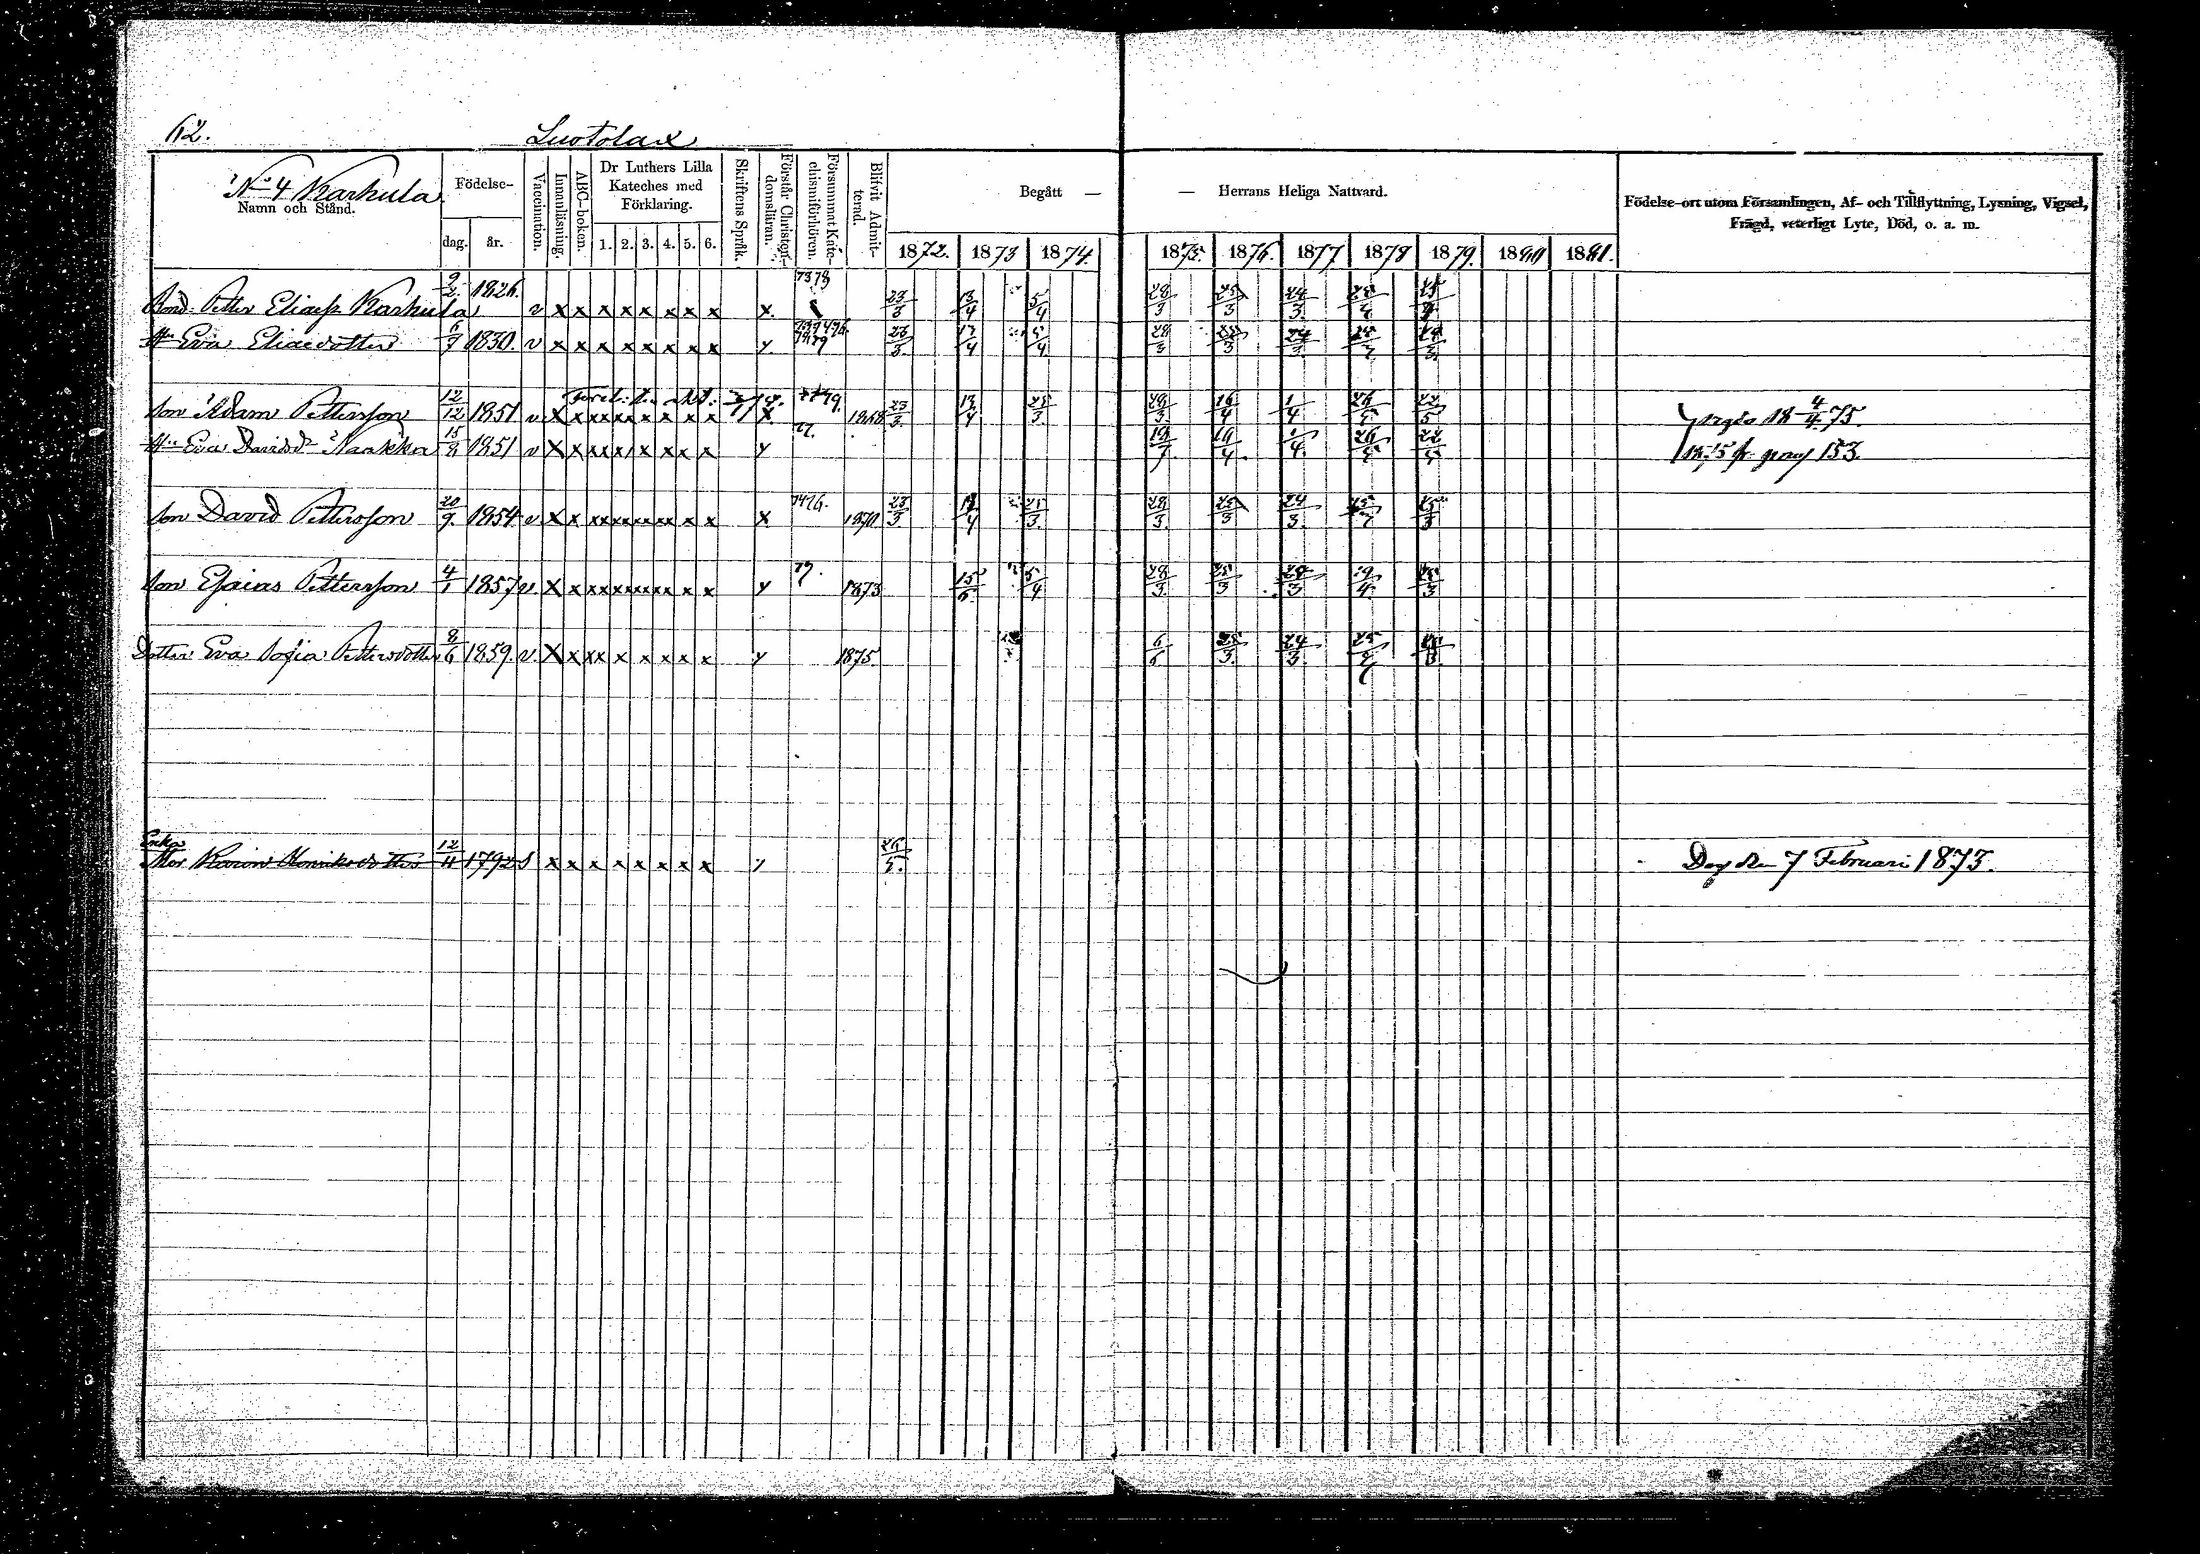 62. Luotolax
N:o 4 Karhula
Namn och Stånd.
Födelse-
dag. år.
Vaccination.
Innanläsning.
ABC-boken.
Dr Luthers Lilla
Kateches med
Förklaring.
1. 2. 3. 4. 5. 6.
Skriftens Språk.
Förstår Christen-
domsläran.
Försummat Kate-
chismiförhören.
Blifvit Admit-
terad.
Begått — — Herrans Heliga Nattvard.
1872. 1873 1874. 1875. 1876. 1877 1878 1879. 1880 1881.
Födelse-ort utom Församlingen, Af- och Tillflyttning, Lysning, Vigsel,
Frägd, veterligt Lyte, Död, o. a. m.
Bond. Petter Eliass. Karhula 9/2 1826. v x x x x x x x x x. 23/3 13/4 5/4 28/3 25/3 24/3
H:u Eva Eliasdotter 6/7 1830. v x x x x x x x x y. 23/3 13/4 5/4 28/3 25/3 24/3
Son Adam Pettersson 12/12 1851 v x x xx xx x x x x x 1868 23/3 13/4 25/3 28/3 16/4 1/4 26/5 22/5 vigde 18 4/4 75.
H:u Eva Davidsd:r Naakka 15/8 1851 v x x xx x x xx x y 77. 19/4 1/4 26/5 22/5 1875 fr. pag 153.
Son David Pettersson 20/9. 1854 v x x xx xx xx xx x x x 7476. 1870 23/3 13/4 25/3. 28/3. 25/3 24/3. 25/3
Son Esaias Pettersson 4/1 1857 v x x xx xx xx xx x x y 79. 1873 15/6. 5/4 28/3. 25/3 24/3 19/4. 25/3
Dotter Eva Sofia Pettersdotter 8/6 1859. v x x xx x x x x x y 1875. 6/6 25/3. 24/3.
Enka
Mor Karin Henriksdotter 12/11 1792 s x x x x x x x x y 26/5. Dog den 7 Februari 1873.